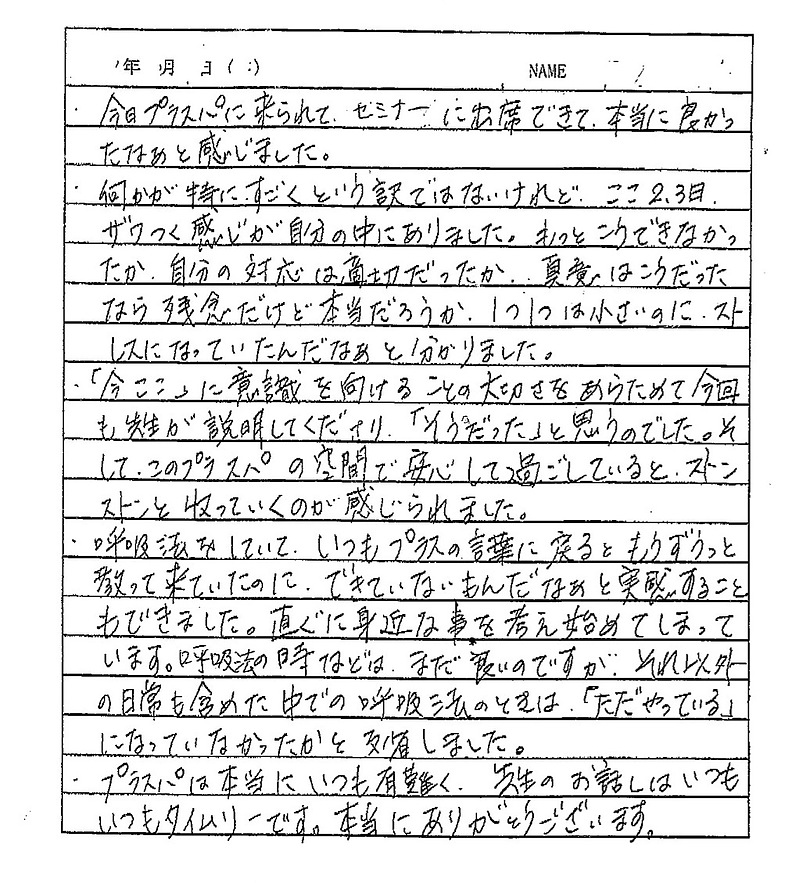 年 月 日 ( ) NAME
・今日プラスパに来られて、セミナーに出席できて、本当に良かっ
たなぁと感じました。
・何かが特にすごくという訳ではないけれど、ここ2、3日、
ザワつく感じが自分の中にありました。もっとこうできなかっ
たか、自分の対応は適切だったか、真意はこうだった
なら残念だけど本当だろうか、1つ1つは小さいのに、スト
レスになっていたんだなぁと分かりました。
・「今ここ」に意識を向けることの大切さをあらためて今回
も先生が説明してくださり、「そうだった」と思うのでした。そ
して、このプラスパの空間で安心して過ごしていると、ストン
ストンと収っていくのが感じられました。
・呼吸法をしていて、いつもプラスの言葉に戻るともうずうっと
教って来ていたのに、できていないもんだなぁと実感すること
もできました。直ぐに身近な事を考え始めてしまって
います。呼吸法の時などは、まだ良いのですが、それ以外
の日常も含めた中での呼吸法のときは、「ただやっている」
になっていなかったかと反省しました。
・プラスパは本当にいつも有難く、先生のお話しはいつも
いつもタイムリーです。本当にありがとうございます。